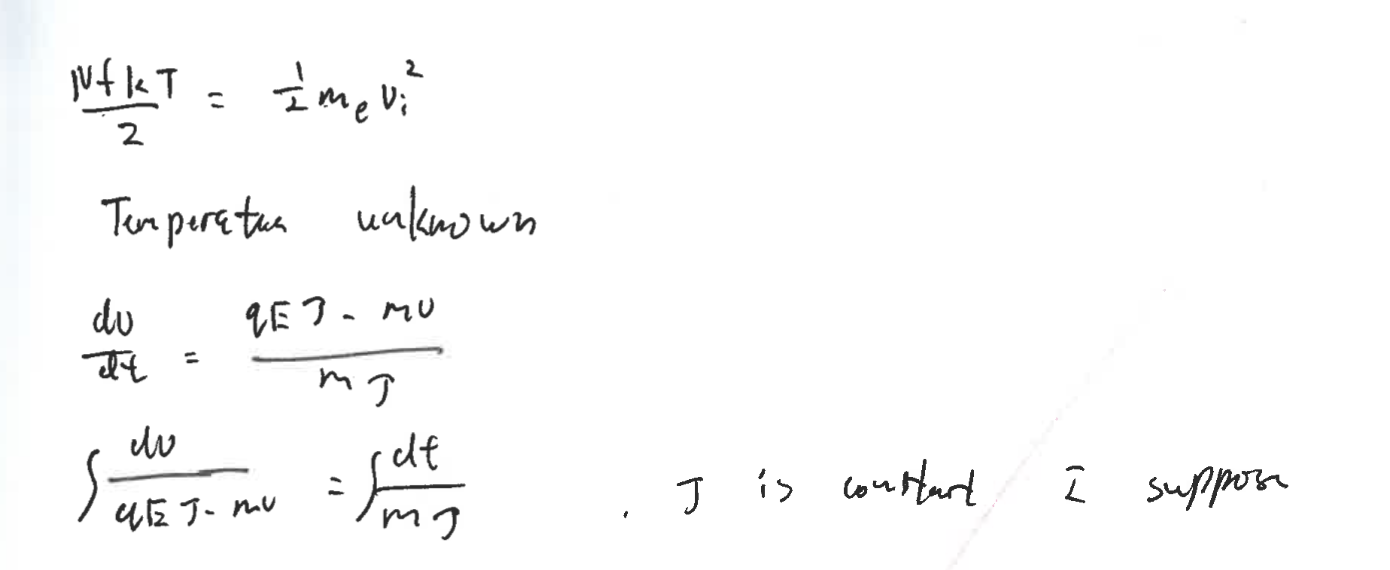 NfkT/2 = 1/2 m_e v_i^2
Temperature unknown
dv/dt = (qEτ - mv)/(mτ)
∫ dv/(qEτ - mv) = ∫ dt/(mτ) . τ is constant I suppose